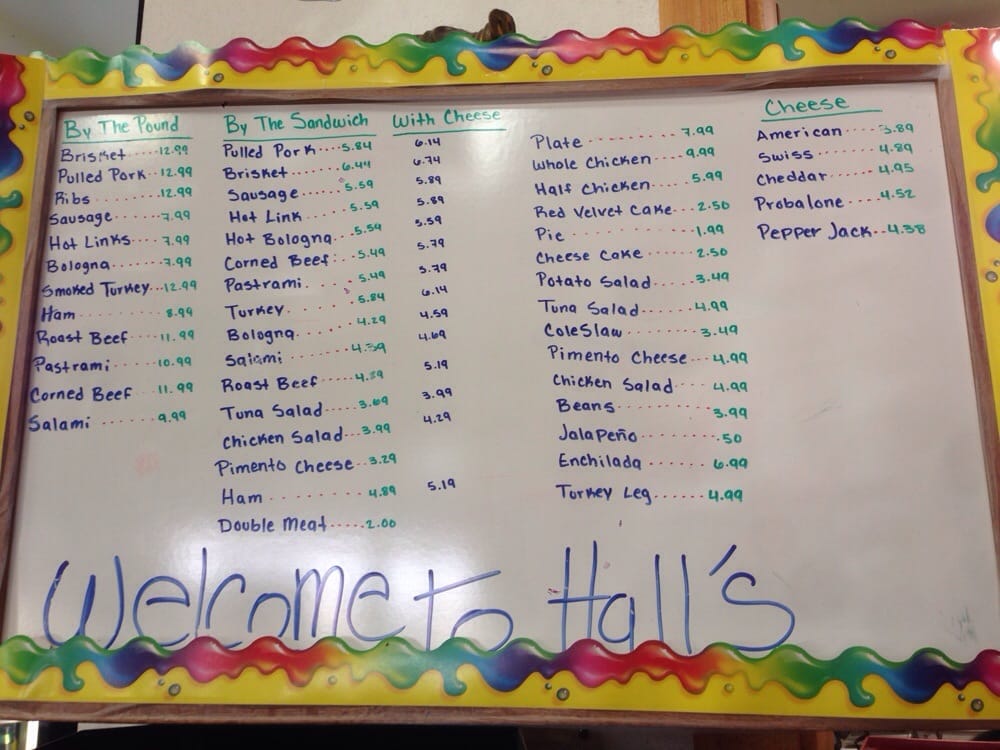 By The Pound
Brisket.....12.99
Pulled Pork..12.99
Ribs.....12.99
Sausage.....7.99
Hot Links....7.99
Bologna......7.99
Smoked Turkey...12.99
Ham.....8.99
Roast Beef...11.99
Pastrami....10.99
Corned Beef..11.99
Salami......9.99
By The Sandwich With Cheese
Pulled Pork...5.84 6.14
Brisket.....6.44 6.74
Sausage.....5.59 5.89
Hot Link.....5.59 5.89
Hot Bologna...5.59 5.59
Corned Beef...5.49 5.79
Pastrami.....5.49 5.79
Turkey.....5.84 6.14
Bologna.....4.29 4.59
Salami.....4.39 4.69
Roast Beef....4.89 5.19
Tuna Salad...3.69 3.99
Chicken Salad...3.99 4.29
Pimento Cheese..3.29
Ham........4.89 5.19
Double Meat.....2.00
Plate.........7.99
Whole Chicken....9.99
Half Chicken....5.99
Red Velvet Cake...2.50
Pie.........1.99
Cheese Cake.....2.50
Potato Salad....3.49
Tuna Salad.....4.99
ColeSlaw.....3.49
Pimento Cheese...4.99
Chicken Salad....4.99
Beans.........3.99
JalaPeño.......50
Enchilada......6.99
Turkey Leg......4.99
Cheese
American....3.89
Swiss.....4.89
Cheddar.....4.95
Probalone....4.52
Pepper Jack..4.38
Welcome to Hall's